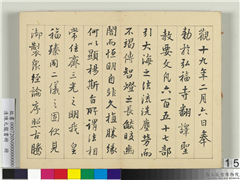 觀十九年二月六日奉
勅於弘福寺翻譯聖
教要文凡六百五十七部
引大海之法流洗塵勞而
不竭傳智燈之長焰皎幽
闇而恒明自非久植勝緣
何以顯揚斯旨所謂法相
常住齊三光之明我皇
福臻同二儀之固伏見
御製衆經論序照古騰
15